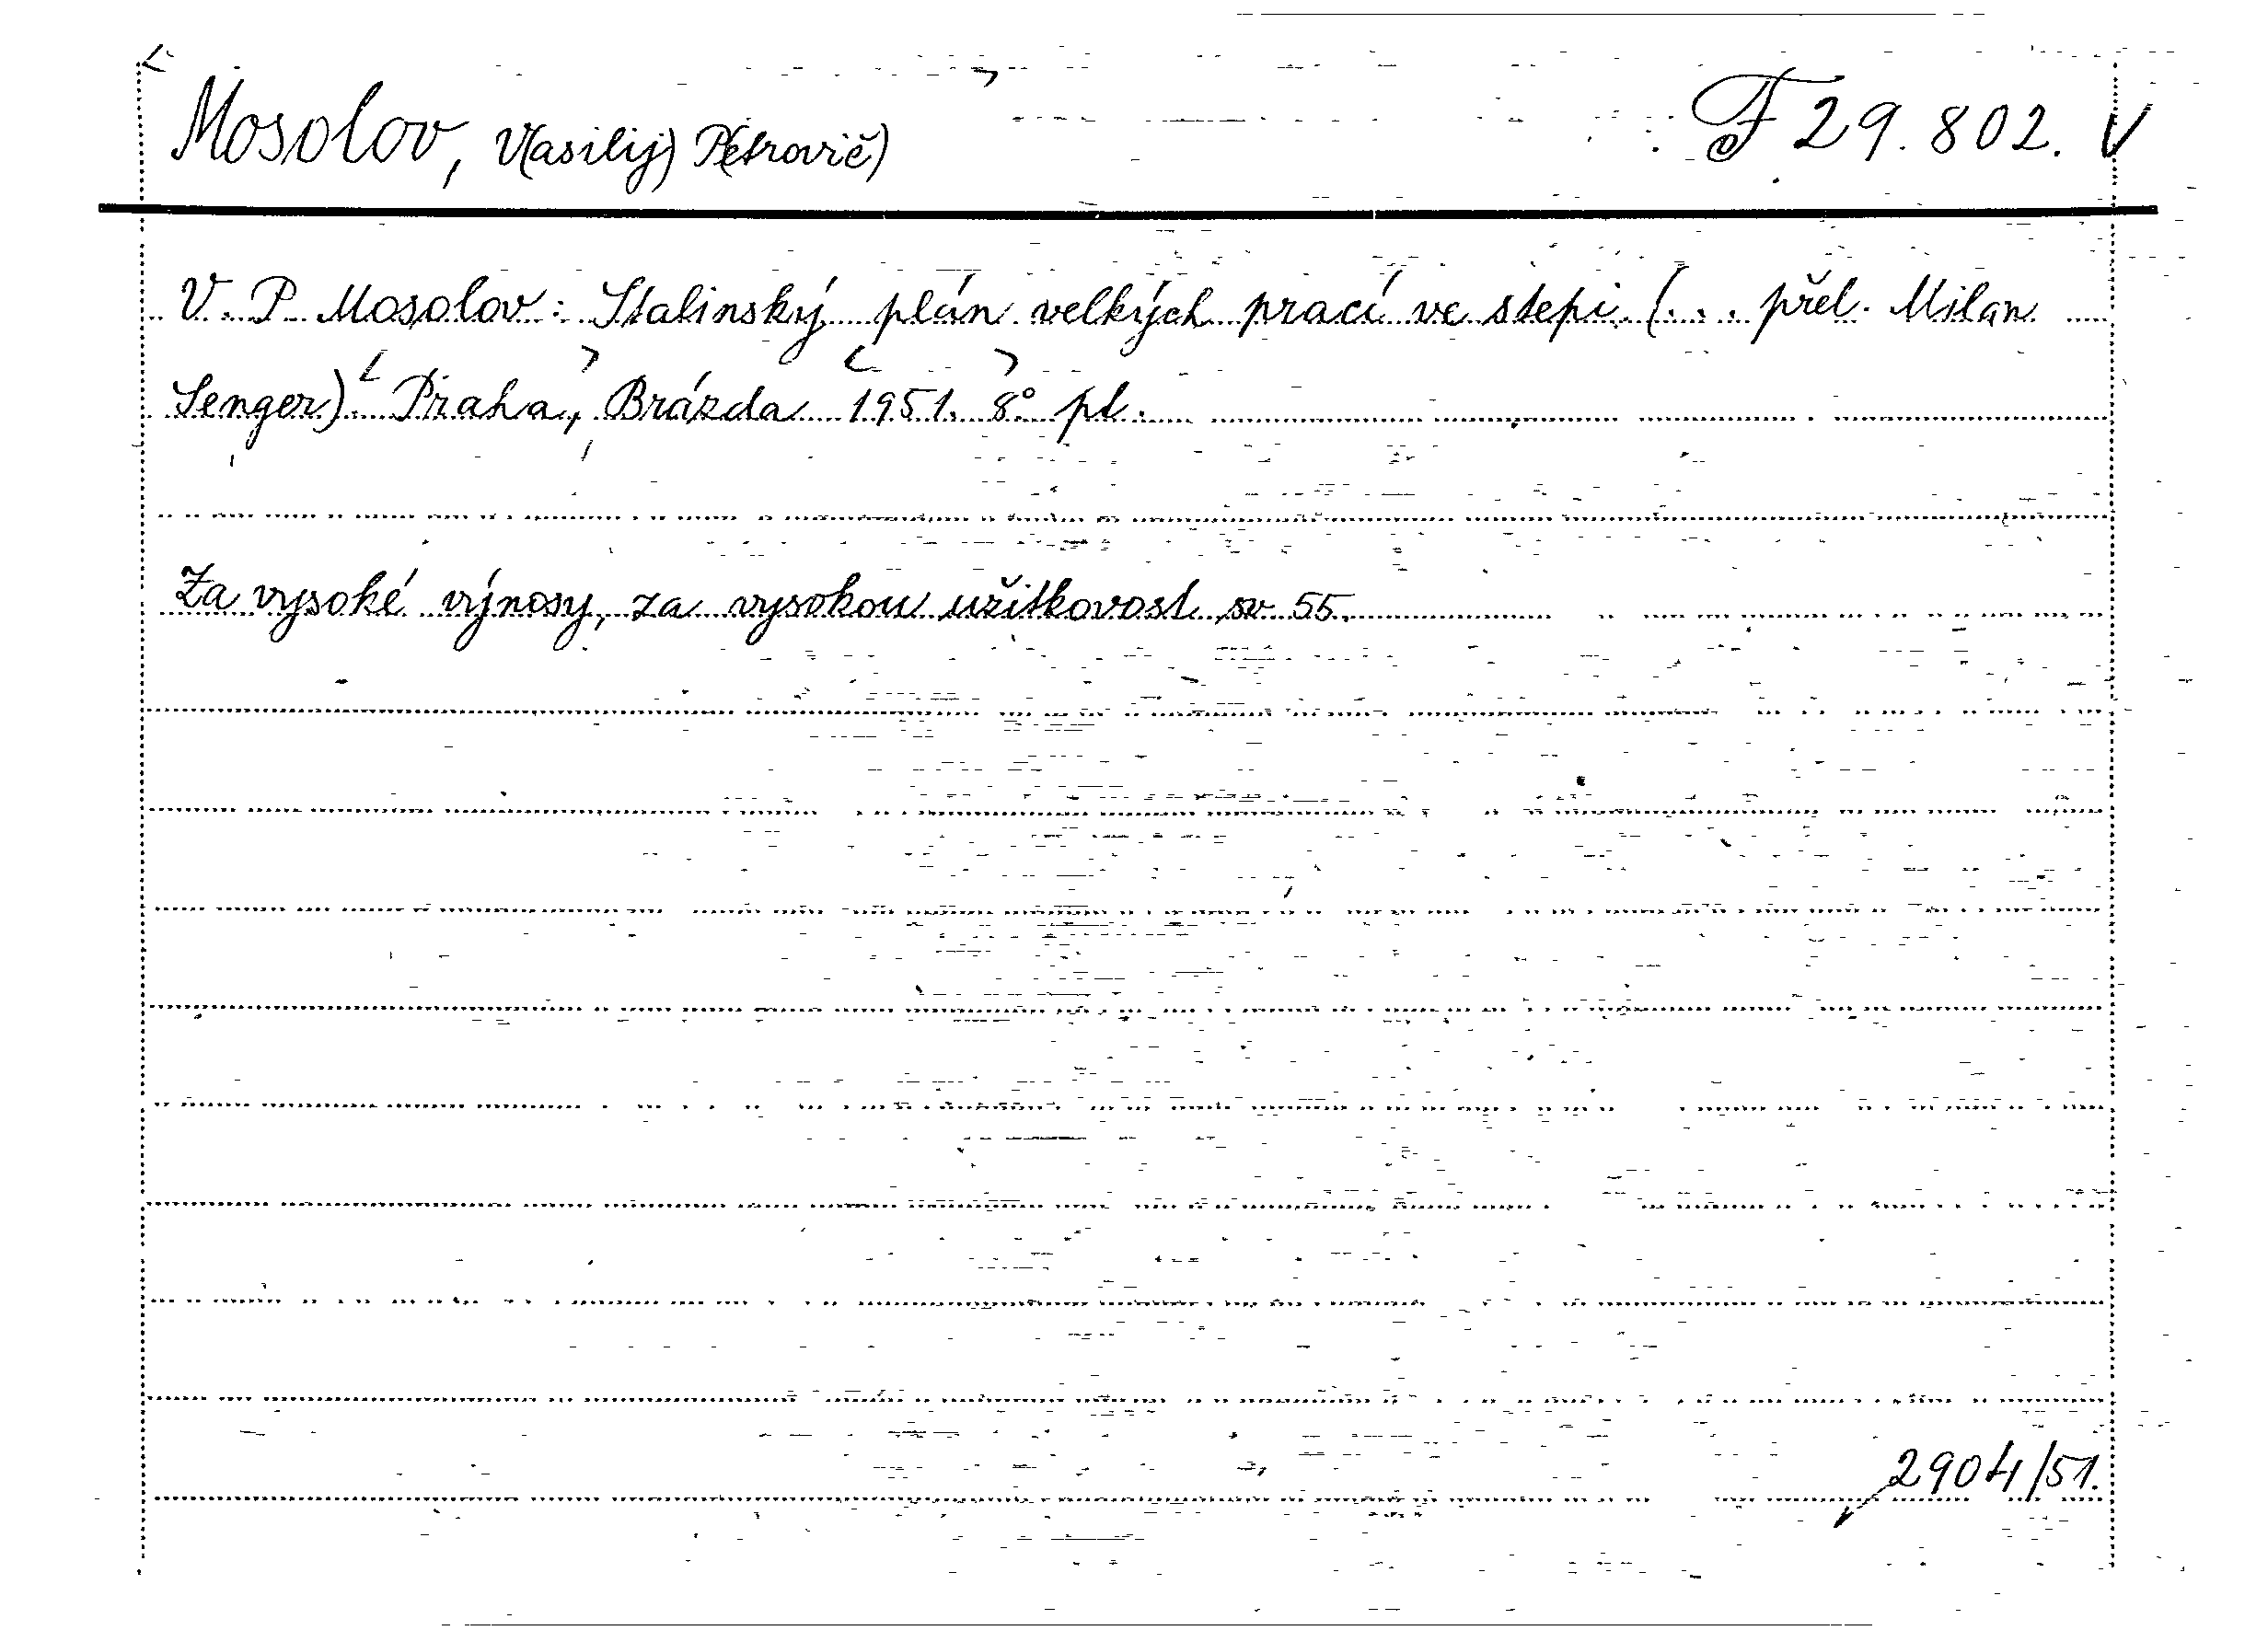 Mosolov, V(asilij) P(etrovič) F 29.802. V
V. P. Mosolov: Stalinský plán velkých prací ve stepi. (... přel. Milan
Senger). Praha, Brázda 1951. 8° pl.
Za vysoké výnosy, za vysokou užitkovost sv. 55.
2904/51.